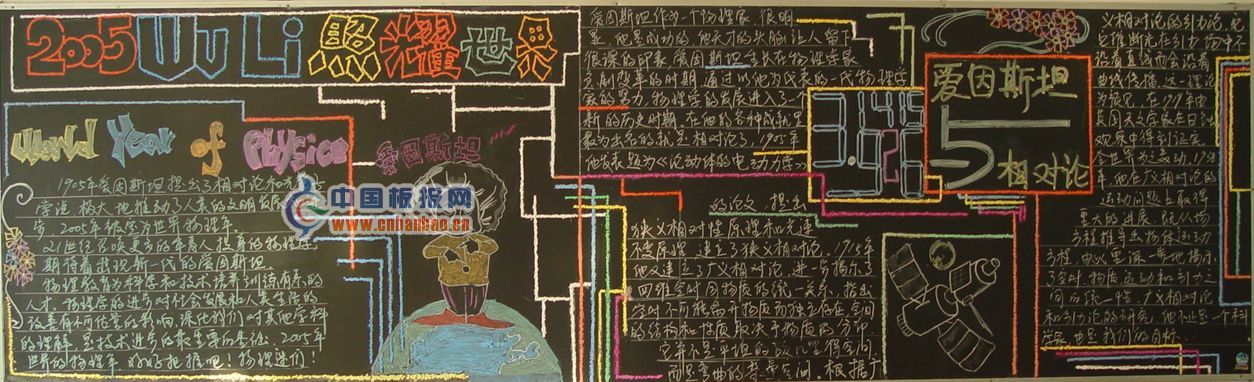 2005 WuLi 照耀世界
World Year of Physics
爱因斯坦
1905年爱因斯坦提出了相对论和光
学说 极大地推动了人类的文明发展
2005年被定为世界物理年
21世纪召唤更多的年青人投身物理
期待着出现新一代的爱因斯坦
物理教育为科学和技术培养训练有素的
人才 物理学的进步对社会发展和人类生活的
改善有不可估量的影响 深化我们对其他学科
的理解 是技术进步的最重要的基础 2005年
世界的物理年
中国板报网
www.cnbanbao.cn
爱因斯坦作为一个物理家 很明
显 他是成功的 他天才的头脑让人留下
很深的印象 爱因斯坦
变革的时期 通过以他为代表的一代物理学
家的努力 物理学的发展进入了一个
新的历史时期 在他的各种成就里
最为出名的就是相对论了 1905年
他发表题为《论动体的电动力学》
的论文 提出
狭义相对性原理和光速
不变原理 建立了狭义相对论 1915年
他又建立了广义相对论 进一步揭示了
四维空时同物质的统一关系 指出
空时不可能离开物质而独立存在 空间
的结构和性质取决于物质的分布
它并不是平坦的欧几里得空间
而是弯曲的黎曼空间 根据广
3.1415
爱因斯坦
5
相对论
义相对论的引力论 他
推断光在引力场中不
沿着直线而会沿着
曲线传播 这一理论
在1919年由
英国天文学家在日蚀
观察中得到证实
全世界为之轰动 1938
年 他在广义相对论的
运动问题上取得
重大 即从场
方程推导出物体运动
方程 由此更深一步地揭示
了空时 物质 运动和引力之
间的统一性 广义相对论
和引力论的研究